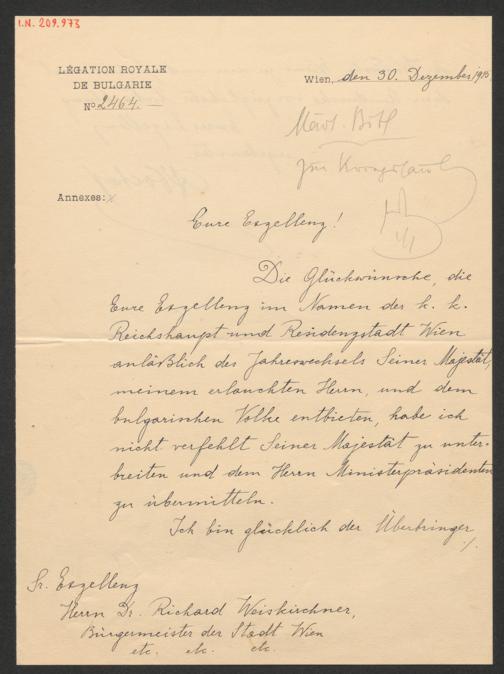 I.N. 209.973
LÉGATION ROYALE
DE BULGARIE
No 2464.
Wien, den 30. Dezember 1915
Annexes:
Eure Exzellenz!
Die Glückwünsche, die
Eure Exzellenz im Namen der k. k.
Reichshaupt und Residenzstadt Wien
anläßlich des Jahreswechsels Seiner Majestät,
meinem erlauchten Herrn, und dem
bulgarischen Volke entbieten, habe ich
nicht verfehlt Seiner Majestät zu unter-
breiten und dem Herrn Ministerpräsidenten
zu übermitteln.
Ich bin glücklich der Überbringer
./.
Sr. Exzellenz
Herrn Dr. Richard Weiskirchner,
Bürgermeister der Stadt Wien
etc. etc. etc.